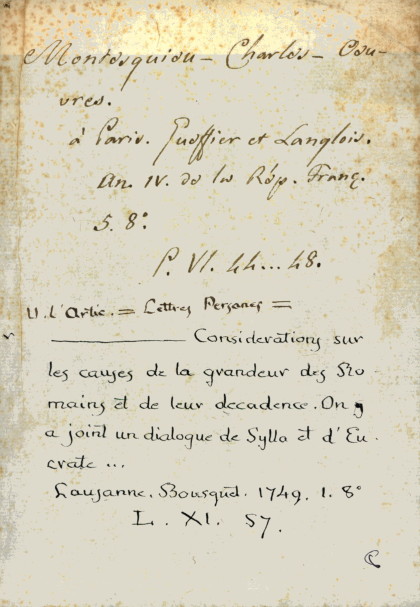 Montesquieu - Charles - Oeu-
vres.
à Paris. Guoffier et Langlois.
An. IV. de la Rép. Franç.
5. 8°.
P. VI. 44...48.
V. l'Artic. = Lettres Persanes =
Considerations sur
les causes de la grandeur des Ro
mains et de leur decadence. On y
a joint un dialogue de Sylla et d'Eu.
crate ...
Lausanne. Bousquet. 1749. 1. 8°
L. XI. 57.